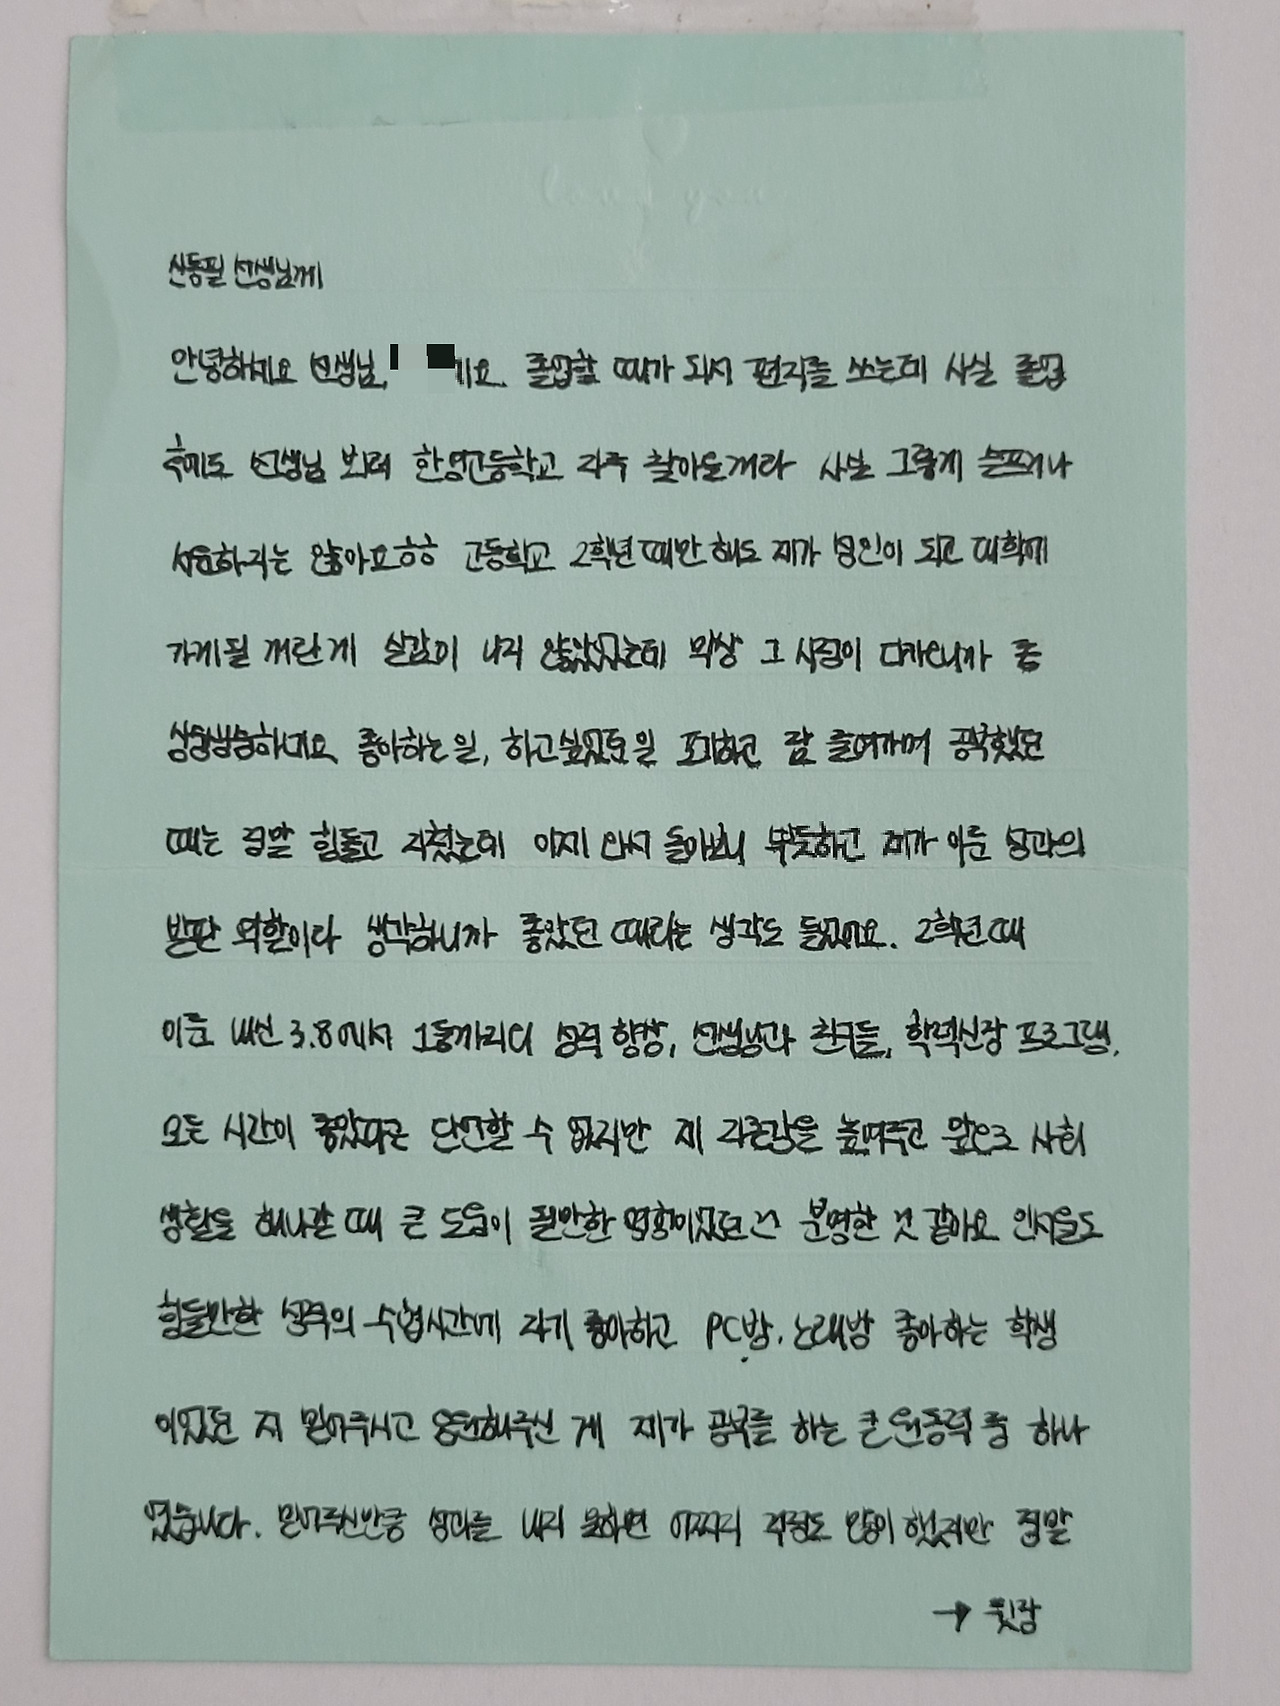 신동필 선생님께
안녕하세요 선생님, 에요. 졸업할 때가 되서 편지를 쓰는데 사실 졸업
후에도 선생님 뵈러 한영고등학교 자주 찾아올꺼라 사실 그렇게 슬프거나
서운하지는 않아요ㅎㅎ 고등학교 2학년 때만 해도 제가 성인이 되고 대학에
가게될 꺼란 게 실감이 나지 않았었는데 막상 그 시점이 다가오니까 좀
싱숭생숭하네요 좋아하는 일, 하고싶었던 일 포기하고 잠 줄여가며 공부했던
때는 정말 힘들고 지쳤는데 이제 와서 돌아보니 뿌듯하고 제가 이룬 성과의
발판 역할이라 생각하니까 좋았던 때라는 생각도 들었어요. 2학년 때
이룬 내신 3.8에서 1등까지의 성적 향상, 선생님과 친구들, 학력신장 프로그램,
모든 시간이 좋았다고 단언할 수 없지만 제 자존감을 높여주고 앞으로 사회
생활을 해나갈 때 큰 도움이 될만한 경험이었던 건 분명한 것 같아요 인서울도
힘들만한 성적의 수업시간에 자기 좋아하고 PC방, 노래방 좋아하는 학생
이었던 저 믿어주시고 응원해주신 게 제가 공부를 하는 큰 원동력 중 하나
였습니다. 믿어주신만큼 성과를 내지 못하면 어쩌지 걱정도 많이 했지만 정말
→ 뒷장